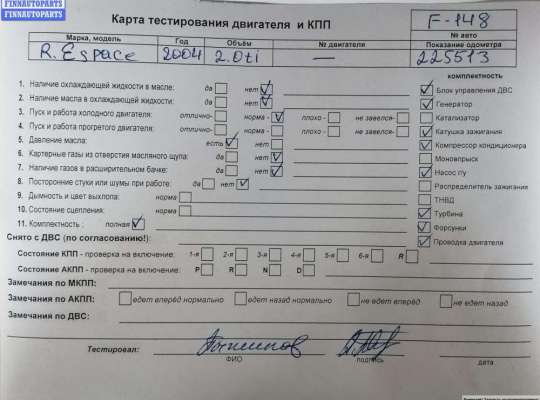 FINNAUTOPARTS
FINNAUTOPARTS
Карта тестирования двигателя и КПП
F-148
№ авто
Марка, модель Год Объём № двигателя Показание одометра
R. Espace 2004 2.0ti — 225513
комплектность
1. Наличие охлаждающей жидкости в масле: да нет
Блок управления ДВС
2. Наличие масла в охлаждающей жидкости: да нет
Генератор
3. Пуск и работа холодного двигателя: отлично- норма - плохо - не завелся-
Катализатор
4. Пуск и работа прогретого двигателя: отлично- норма - плохо - не завелся-
Катушка зажигания
5. Давление масла: есть нет
Компрессор кондиционера
6. Картерные газы из отверстия масляного щупа: да нет
Моновпрыск
7. Наличие газов в расширительном бачке: да нет
Насос г\у
8. Посторонние стуки или шумы при работе: да нет
Распределитель зажигания
9. Дымность и цвет выхлопа: норма
ТНВД
10. Состояние сцепления: норма
Турбина
11. Комплектность : полная
Форсунки
Снято с ДВС (по согласованию!):
Проводка двигателя
Состояние КПП - проверка на включение: 1-я 2-я 3-я 4-я 5-я 6-я R
Состояние АКПП - проверка на включение: P R N D
Замечания по МКПП:
Замечания по АКПП: едет вперёд нормально едет назад нормально не едет вперёд не едет назад
Замечания по ДВС:
Тестировал:
ФИО подпись дата